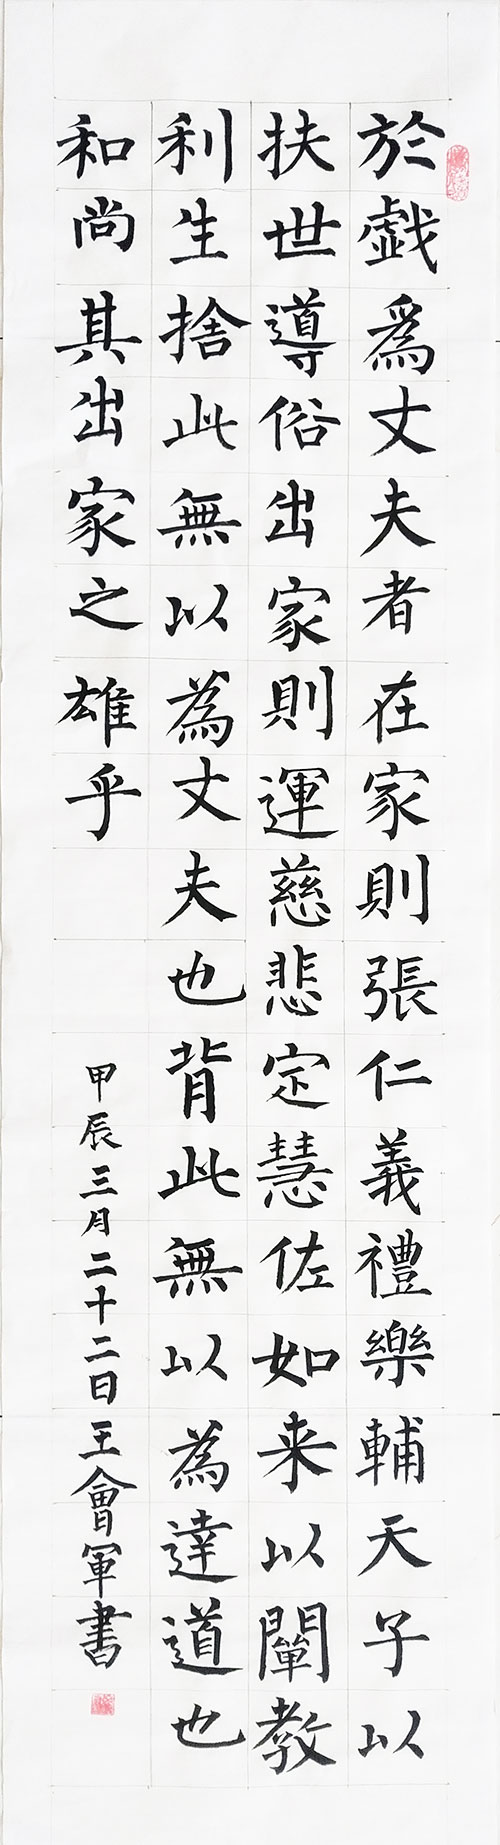 於戲爲丈夫者在家則張仁義禮樂輔天子以
扶世導俗出家則運慈悲定慧佐如来以闡教
利生捨此無以為丈夫也背此無以為達道也
和尚其出家之雄乎
甲辰三月二十二日王會軍書